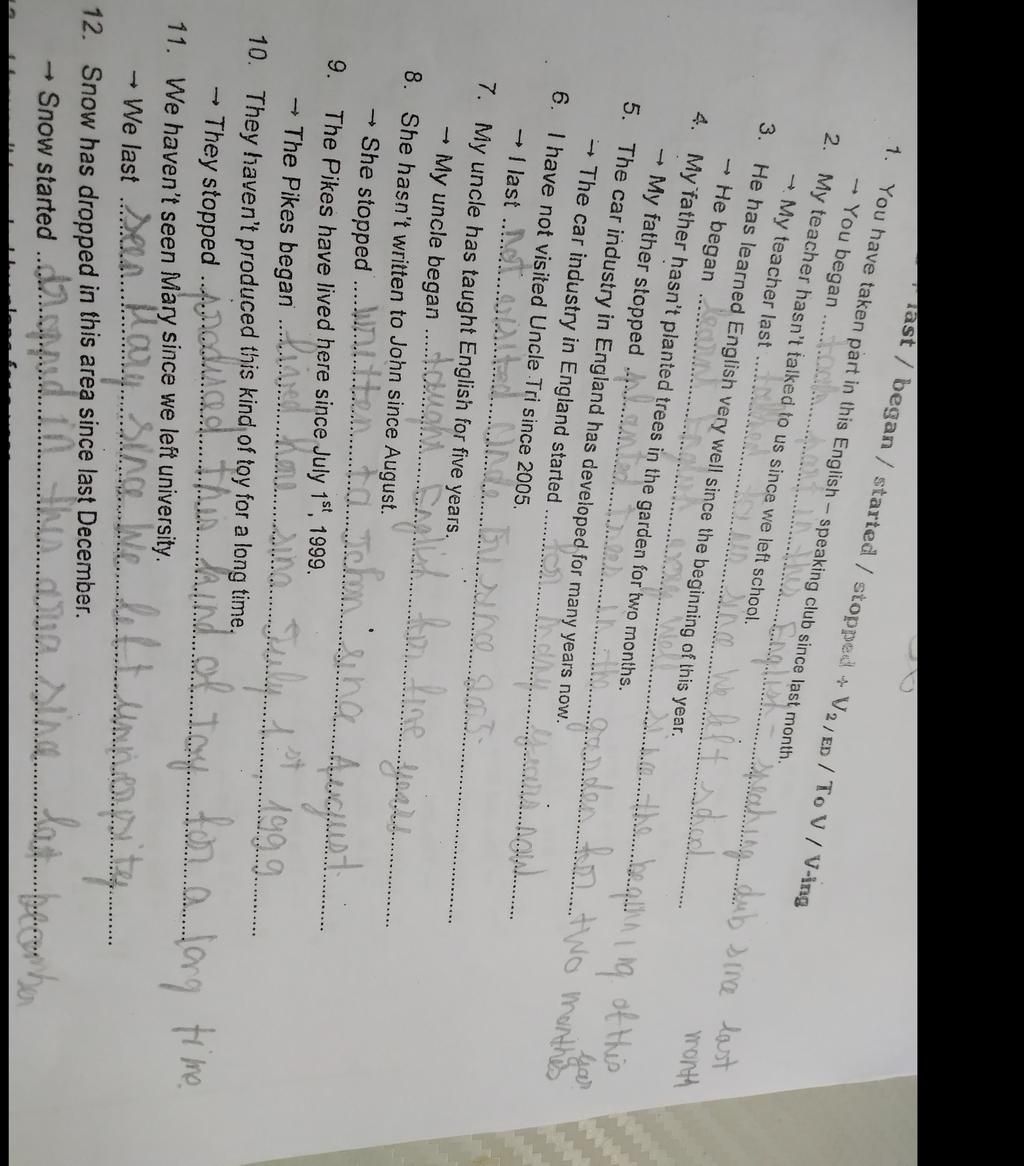 last / began / started / stopped + V2 / ED / To V / V-ing
1. You have taken part in this English – speaking club since last month.
→ You began ..... took part in this English - speaking club since last month
2. My teacher hasn't talked to us since we left school.
→ My teacher last ... talked to us since we left school
3. He has learned English very well since the beginning of this year.
→ He began ..... learnt English very well since the beginning of this year
4. My father hasn't planted trees in the garden for two months.
→ My father stopped ... planted trees in the garden for two months
5. The car industry in England has developed for many years now.
→ The car industry in England started ..... for many years now
6. I have not visited Uncle Tri since 2005.
→ I last ..... not visited Uncle Tri since 2005.
7. My uncle has taught English for five years.
→ My uncle began ..... tought English for five years
8. She hasn't written to John since August.
→ She stopped ..... written to John since August
9. The Pikes have lived here since July 1st, 1999.
→ The Pikes began ..... lived here since July 1st 1999
10. They haven't produced this kind of toy for a long time.
→ They stopped ... produced this kind of toy for a long time.
11. We haven't seen Mary since we left university.
→ We last ..... seen Mary since we left
12. Snow has dropped in this area since last December.
→ Snow started ... dropped in this area since last